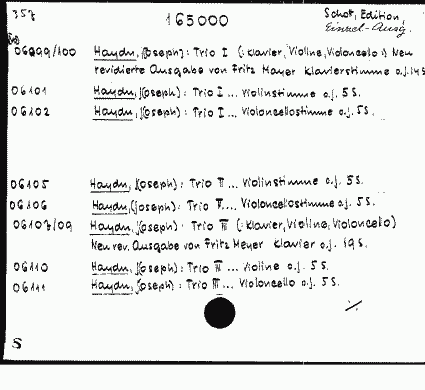 357
165000
Schott, Edition,
Einzel-Ausg.
06099/100 Haydn, J(oseph): Trio I (: Klavier, Violine, Violoncello :) Neu
revidierte Ausgabe von Fritz Meyer Klavierstimme o.J. 14 S
06101 Haydn, J(oseph): Trio I ... Violinstimme o.J. 5 S.
06102 Haydn, J(oseph): Trio I ... Violoncellostimme o.J. 5 S.
06105 Haydn, J(oseph): Trio II ... Violinstimme o.J. 5 S.
06106 Haydn, J(oseph): Trio ... Violoncellostimme o.J. 5 S.
06107/09 Haydn, J(oseph): Trio III (: Klavier, Violine, Violoncello)
Neu rev. Ausgabe von Fritz Meyer Klavier o.J. 19 S.
06110 Haydn, J(oseph): Trio III ... Violine o.J. 5 S.
06111 Haydn, J(oseph): Trio III ... Violoncello o.J. 5 S.
S